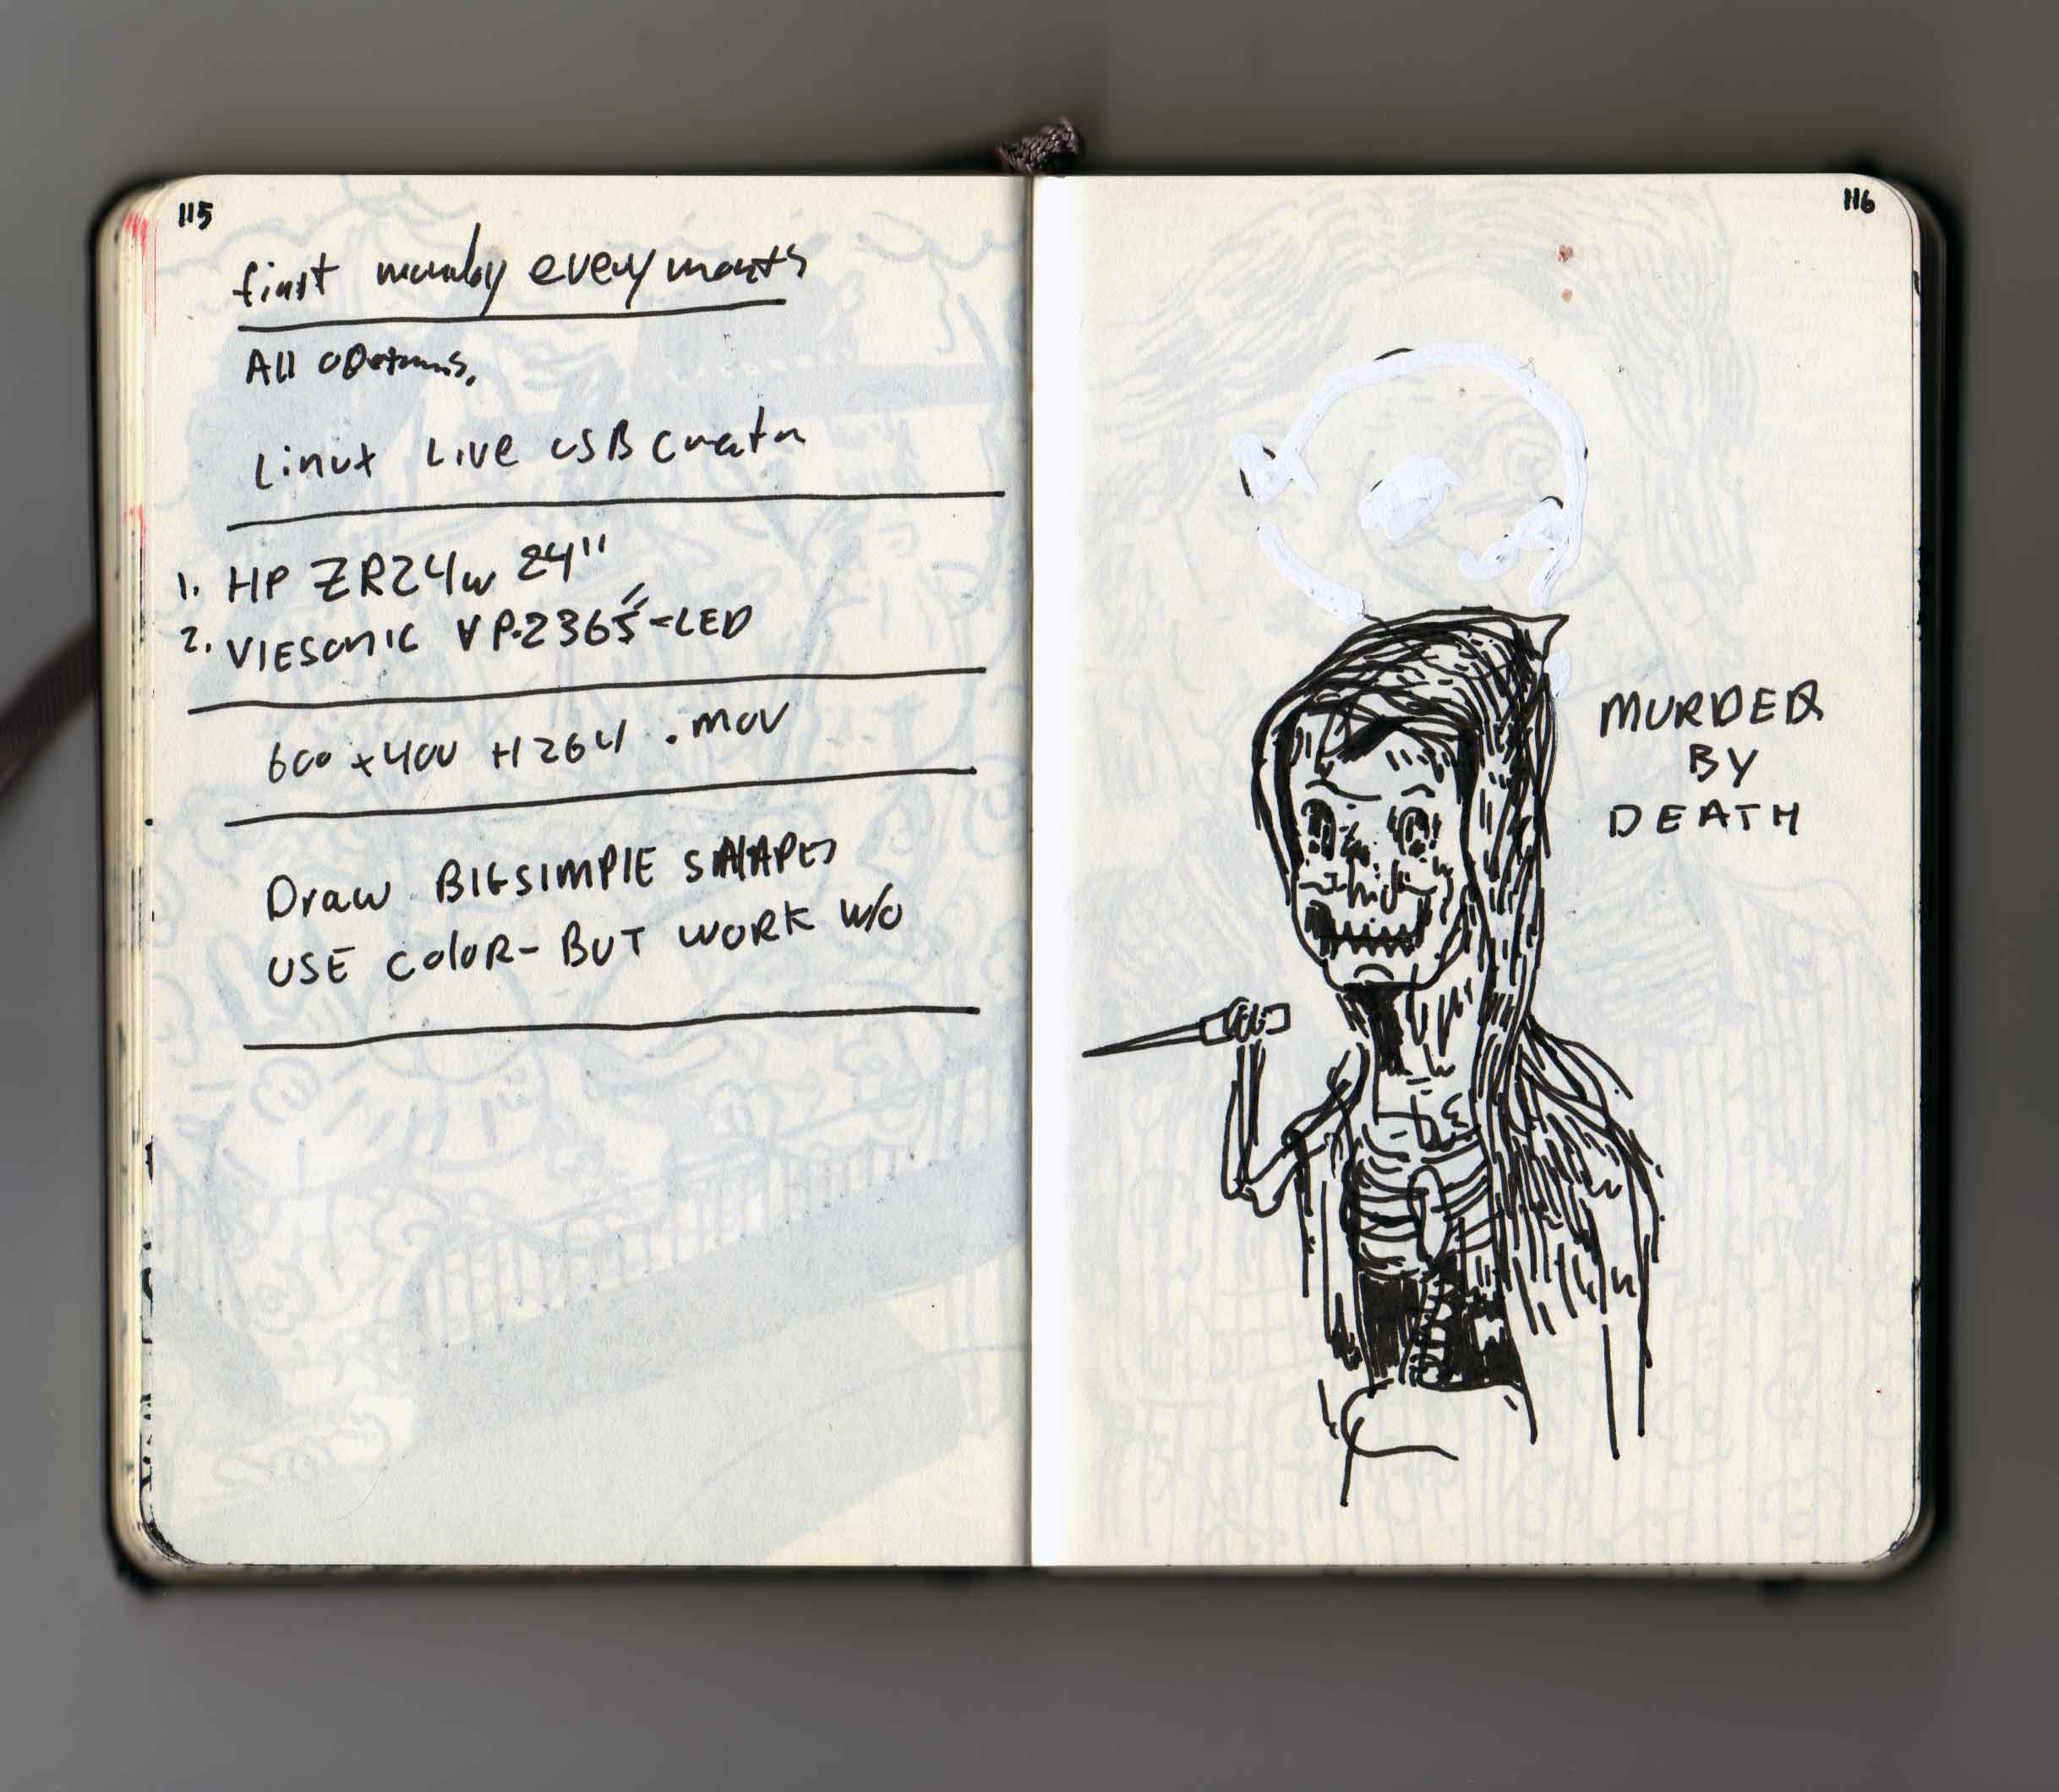 115
first monday every month
All options.
Linux Live USB Creator
1. HP ZR24w 24"
2. VIESONIC VP2365-LED
600 x 400 H264 .mov
Draw BIG SIMPLE SHAPES
USE COLOR - BUT WORK W/O
116
MURDER
BY
DEATH